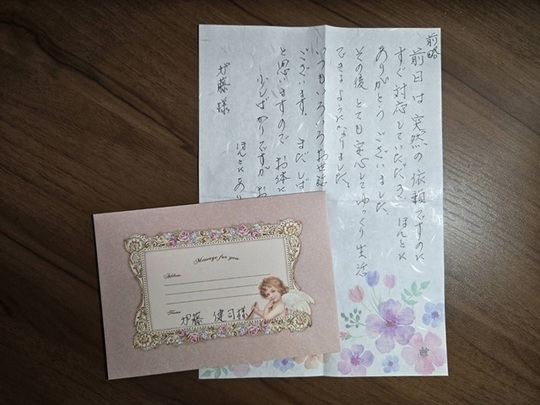 前略
前日は突然の依頼ですのに
すぐ対応していただき ほんとに
ありがとうございました。
その後とても安心してゆっくり生活
できるようになりました。
いつもいろいろお世
ございます。まだしば
と思いますので お体に
少しばかりですが お
ほんとにあり
伊藤様
Message for you
Address
Name
伊藤 健司様